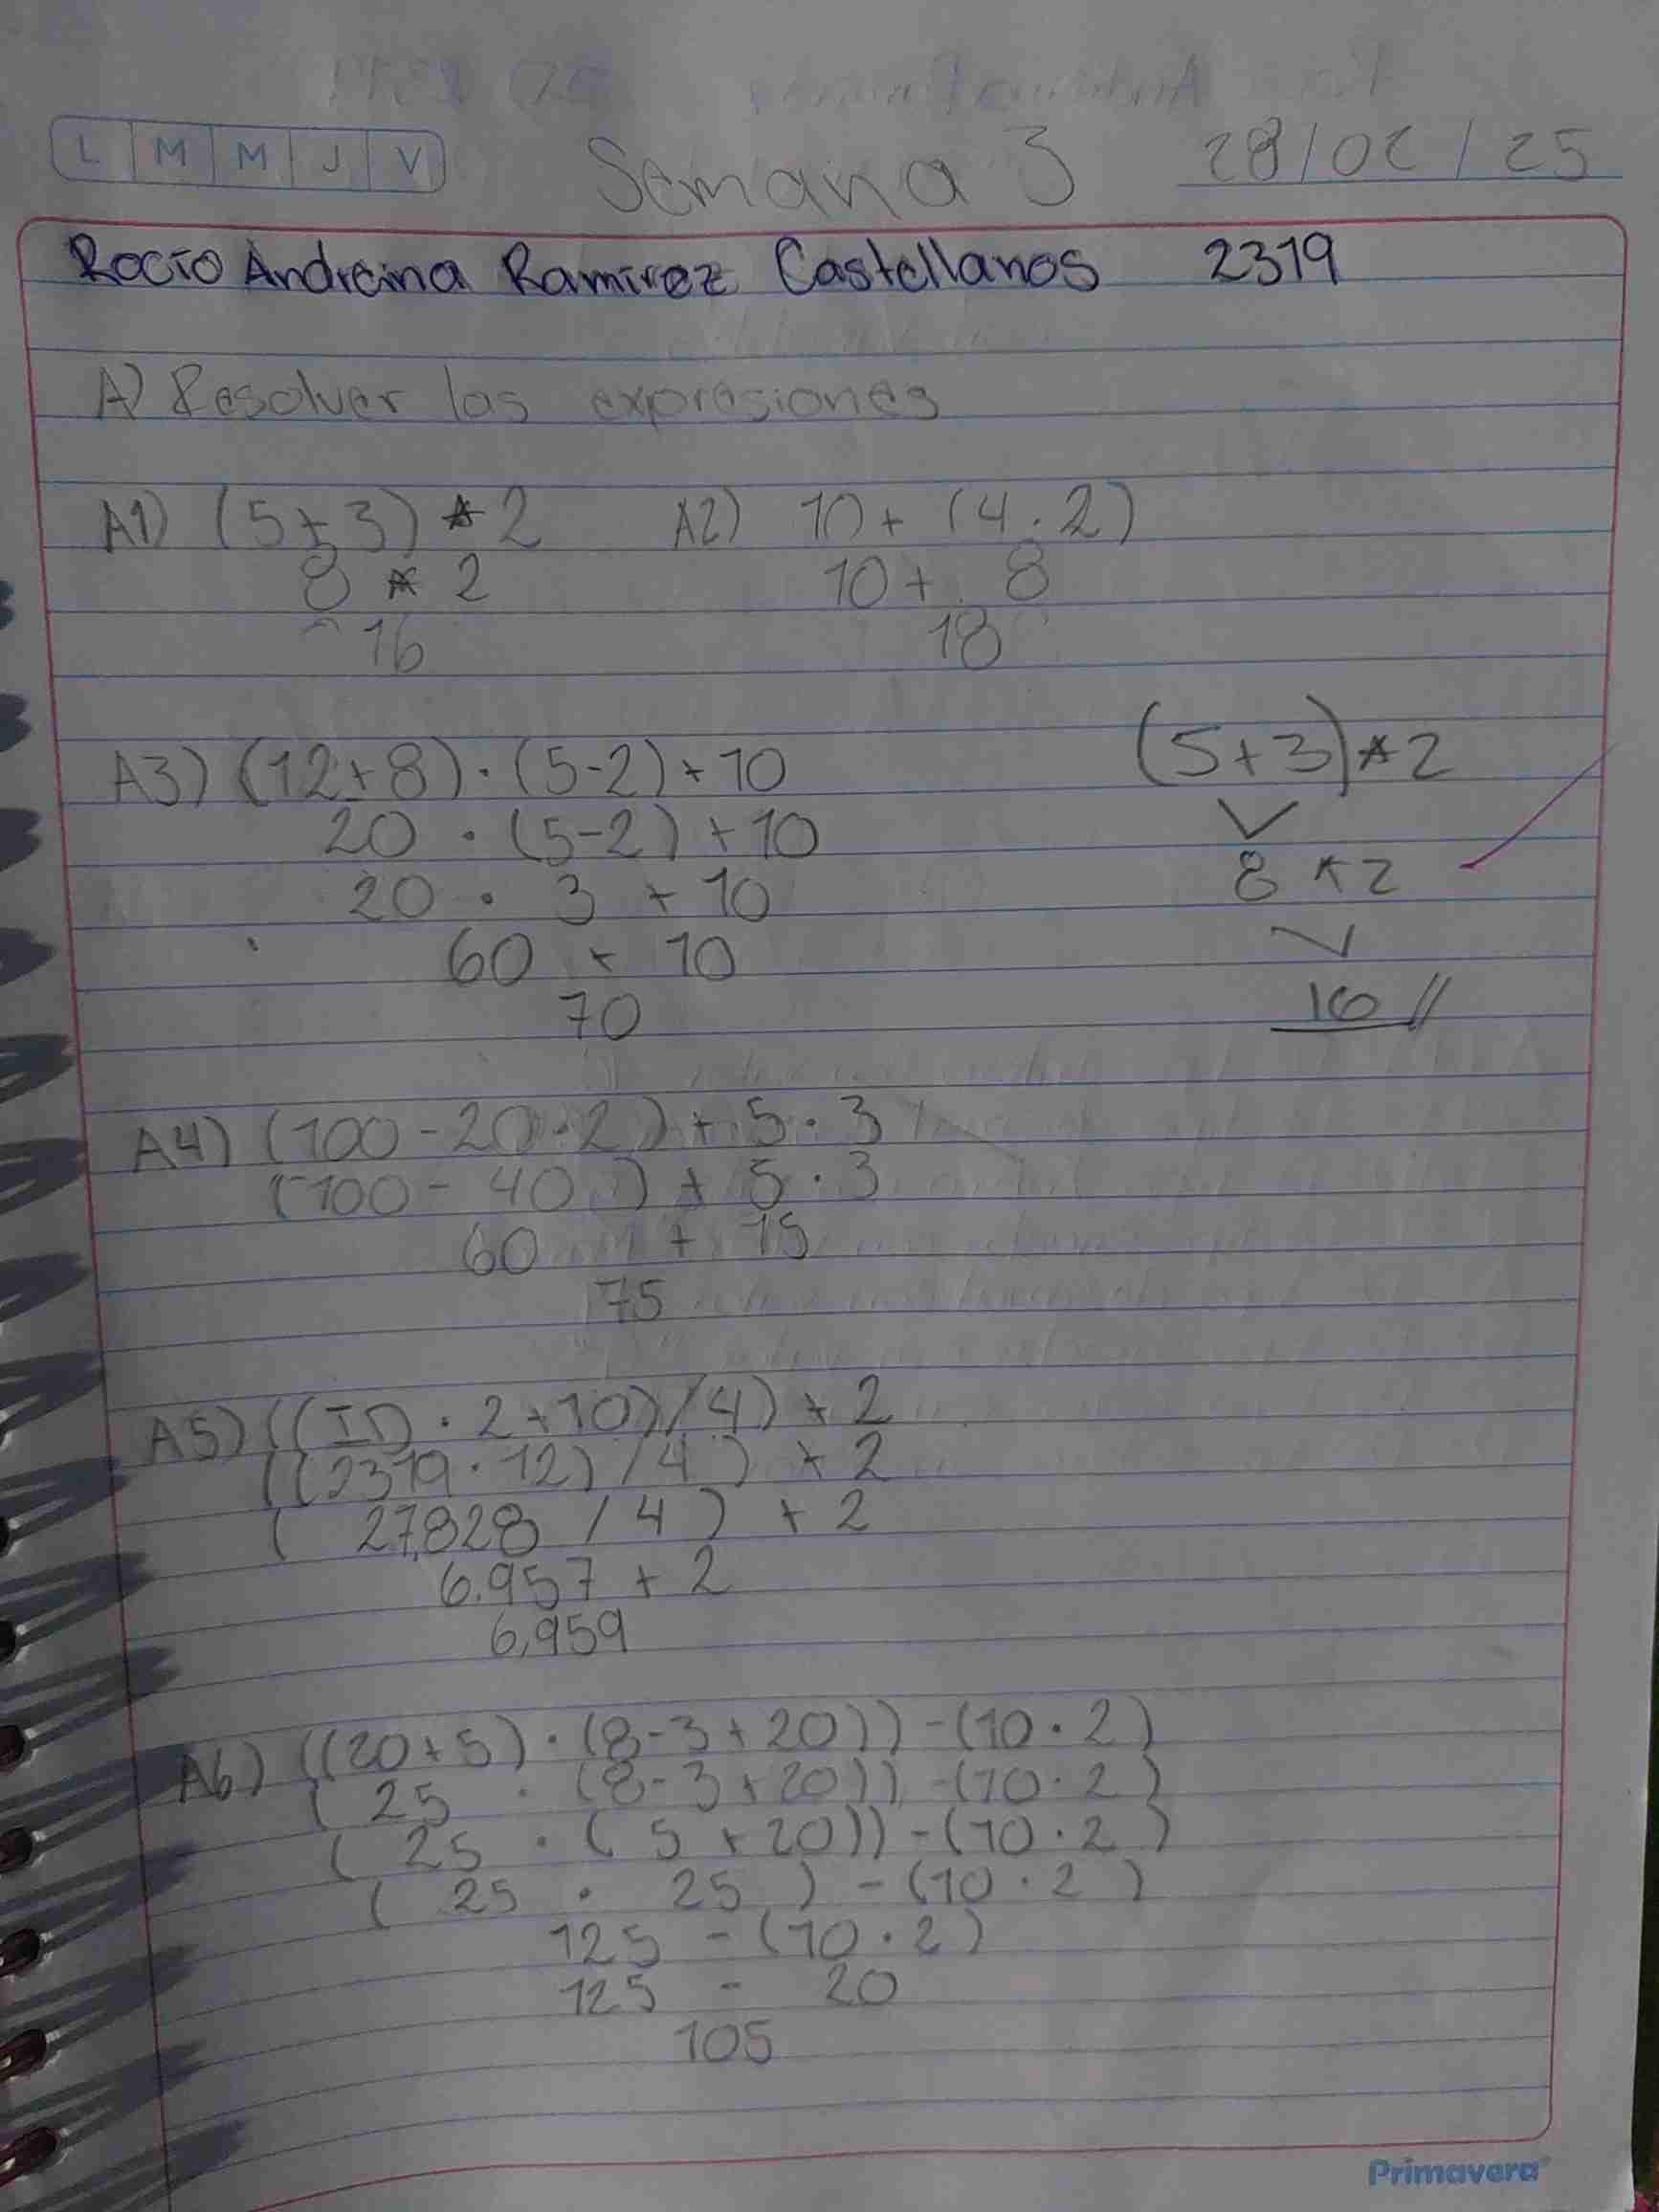 L M M J V
Semana 3 28/02/25
Rocio Andreina Ramirez Castellanos 2319
A) Resolver las expresiones
A1) (5+3) * 2 A2) 10+ (4 . 2)
8 * 2 10 + 8
16 18
A3) (12+8) . (5-2) + 10
20 . (5-2) + 10
20 . 3 + 10
60 + 10
70
(5+3)*2
8 * 2
16 //
A4) (100 - 20 . 2) + 5 . 3
(100 - 40 ) + 5 . 3
60 + 15
75
A5) ((ID . 2 + 10) / 4) + 2
((2319 . 12) / 4 ) + 2
( 27,828 / 4 ) + 2
6.957 + 2
6,959
A6) ((20+5) . (8-3+20)) - (10 . 2)
( 25 . (8-3+20)) - (10 . 2)
( 25 . ( 5 + 20)) - (10 . 2 )
( 25 . 25 ) - (10 . 2 )
125 - (10 . 2)
125 - 20
105
Primavera